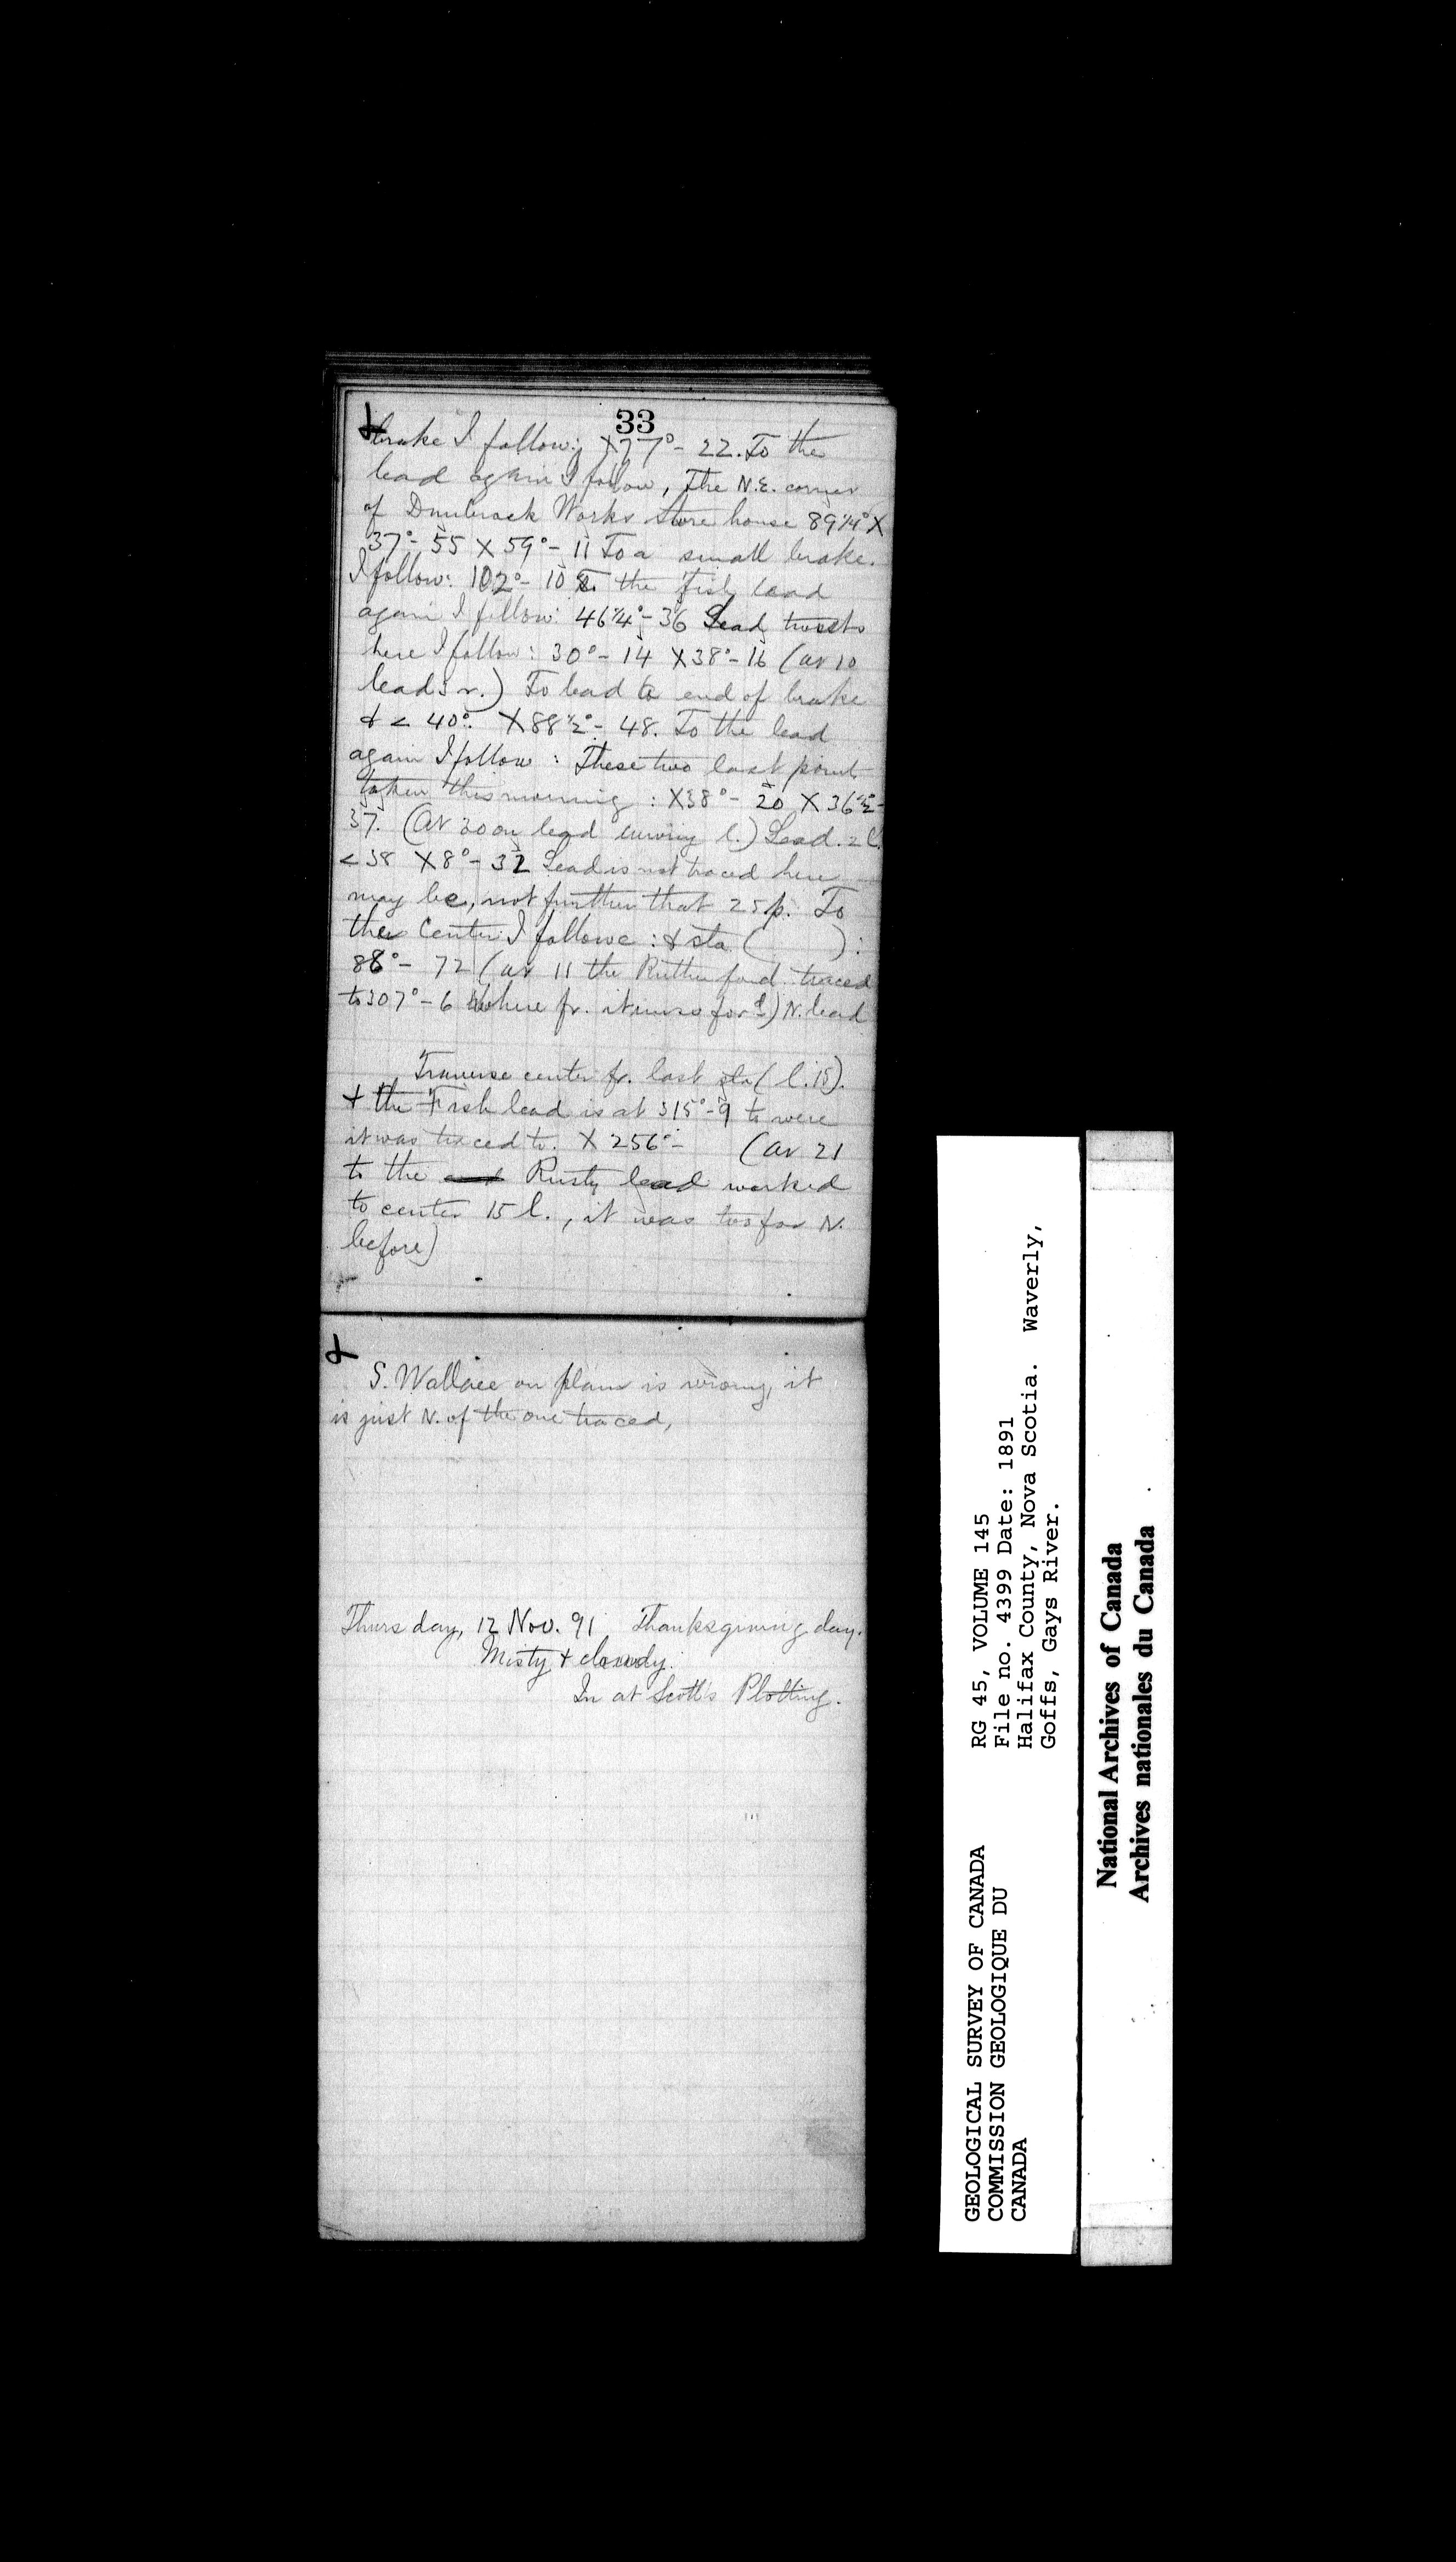 33
brake I follow: X77°- 22. To the
lead again I follow, The N.E. corner
of Dumbrack Works store house 89¼° X
37°- 55 X 59°- 11 To a small brake.
I follow: 102°- 10 To the Fish lead
again I follow: 46¼°- 36 Lead twists
here I follow: 30°- 14 X38°- 16 (at 10
lead 3 r.) To lead to end of brake
& < 40°. X88½°- 48. To the lead
again I follow: These two last points
taken this morning: X38°- 20 X 36½°-
37. (At 30 on lead curving l.) Lead. 2 l.
<38 X8°- 32 Lead is not traced here
may be, not further that 25p. To
the Center I follow: & sta. ( ):
88°- 72 (at 11 the Rutherford traced
to 307°- 6 where fr. it runs for d) N. lead
Traverse center fr. last sta (l. 15).
& the Fish lead is at 315°-9 to were
it was traced to. X 256°- (at 21
to the Rusty lead worked
to center 15 l., it was too far N.
before)
&
S. Wallace on plan is wrong, it
is just N. of the one traced,
Thursday, 12 Nov. 91. Thanksgiving day.
Misty & cloudy.
In at Scott's Plotting.
GEOLOGICAL SURVEY OF CANADA
COMMISSION GEOLOGIQUE DU
CANADA
RG 45, VOLUME 145
File no. 4399 Date: 1891
Halifax County, Nova Scotia. Waverly,
Goffs, Gays River.
National Archives of Canada
Archives nationales du Canada